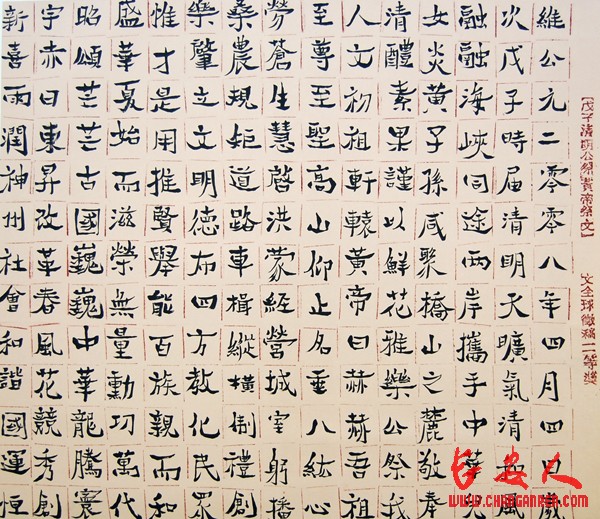 【戊子清明公祭黃帝祭文】 文全球徵稿二等獎
維公元二零零八年四月四日歲
次戊子時届清明天曠氣清和風
融融海峽同途兩岸攜手中華兒
女炎黃子孫咸聚橋山之麓敬奉
清醴素果謹以鮮花雅樂公祭我
人文初祖軒轅黃帝曰赫赫吾祖
至尊至聖高山仰止名垂八紘心
勞蒼生慧啓洪蒙經營城室躬播
桑農規矩道路車楫縱橫制禮創
樂肇立文明德布四方教化民眾
惟才是用推賢舉能百族親而和
盛華夏始而滋榮無量勳功萬代
昭頌芒芒古國巍巍中華龍騰寰
宇赤日東昇改革春風花競秀創
新喜雨潤神州社會和諧國運恒
长安人
WWW.CHANGANREN.COM